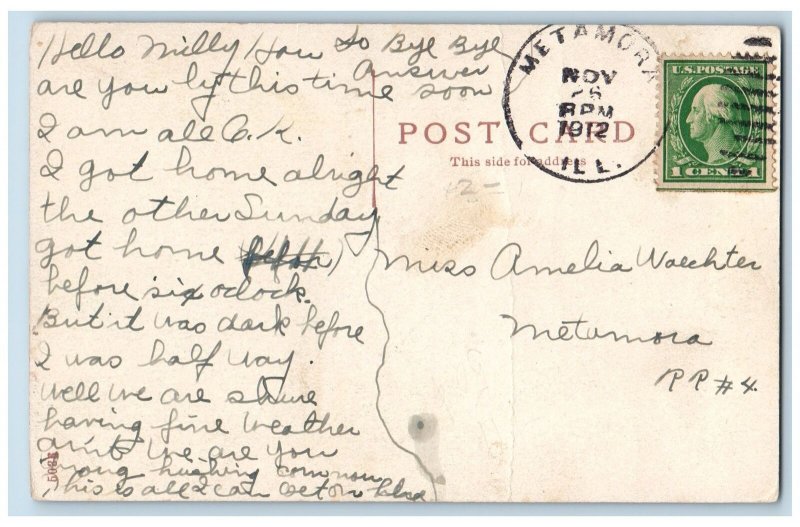 Hello Milly How
are you by this time
I am all O.K.
I got home alright
the other Sunday
got home
before six oclock.
But it was dark before
I was half way.
Well we are shure
having fine weather
aint we are you
hushing com now
This is all I can
So Bye Bye
Answer
soon
POST CARD
This side for address
-2-
METAMORA
NOV
26
PM
1912
ILL.
U.S. POSTAGE
1 CENT 1
Miss Amelia Waechter
Metamora
RR #4